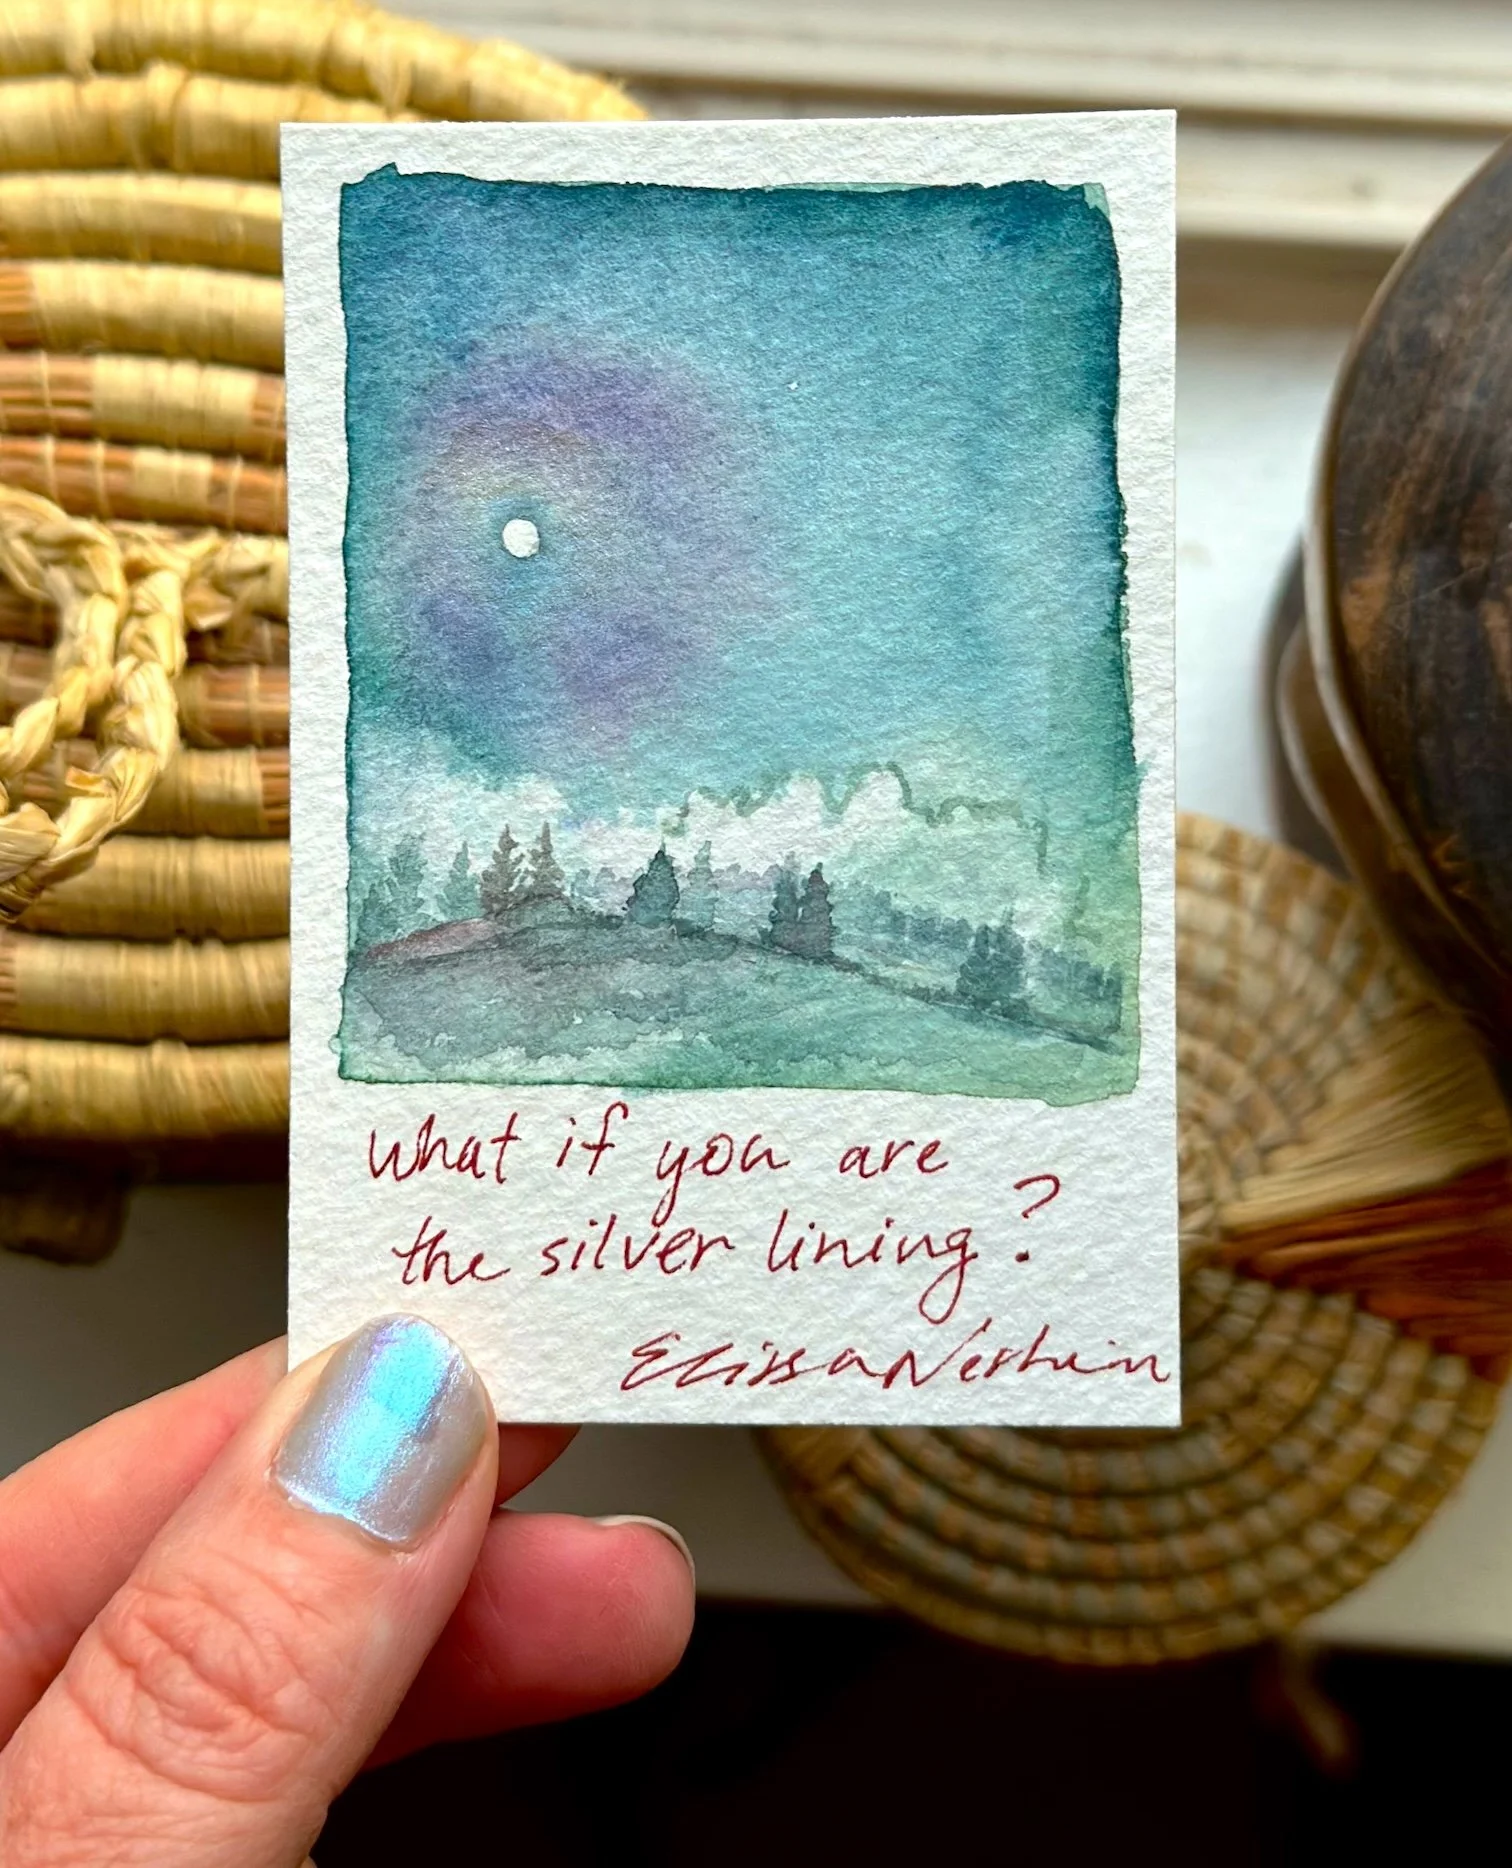 what if you are
the silver lining?
Elissa